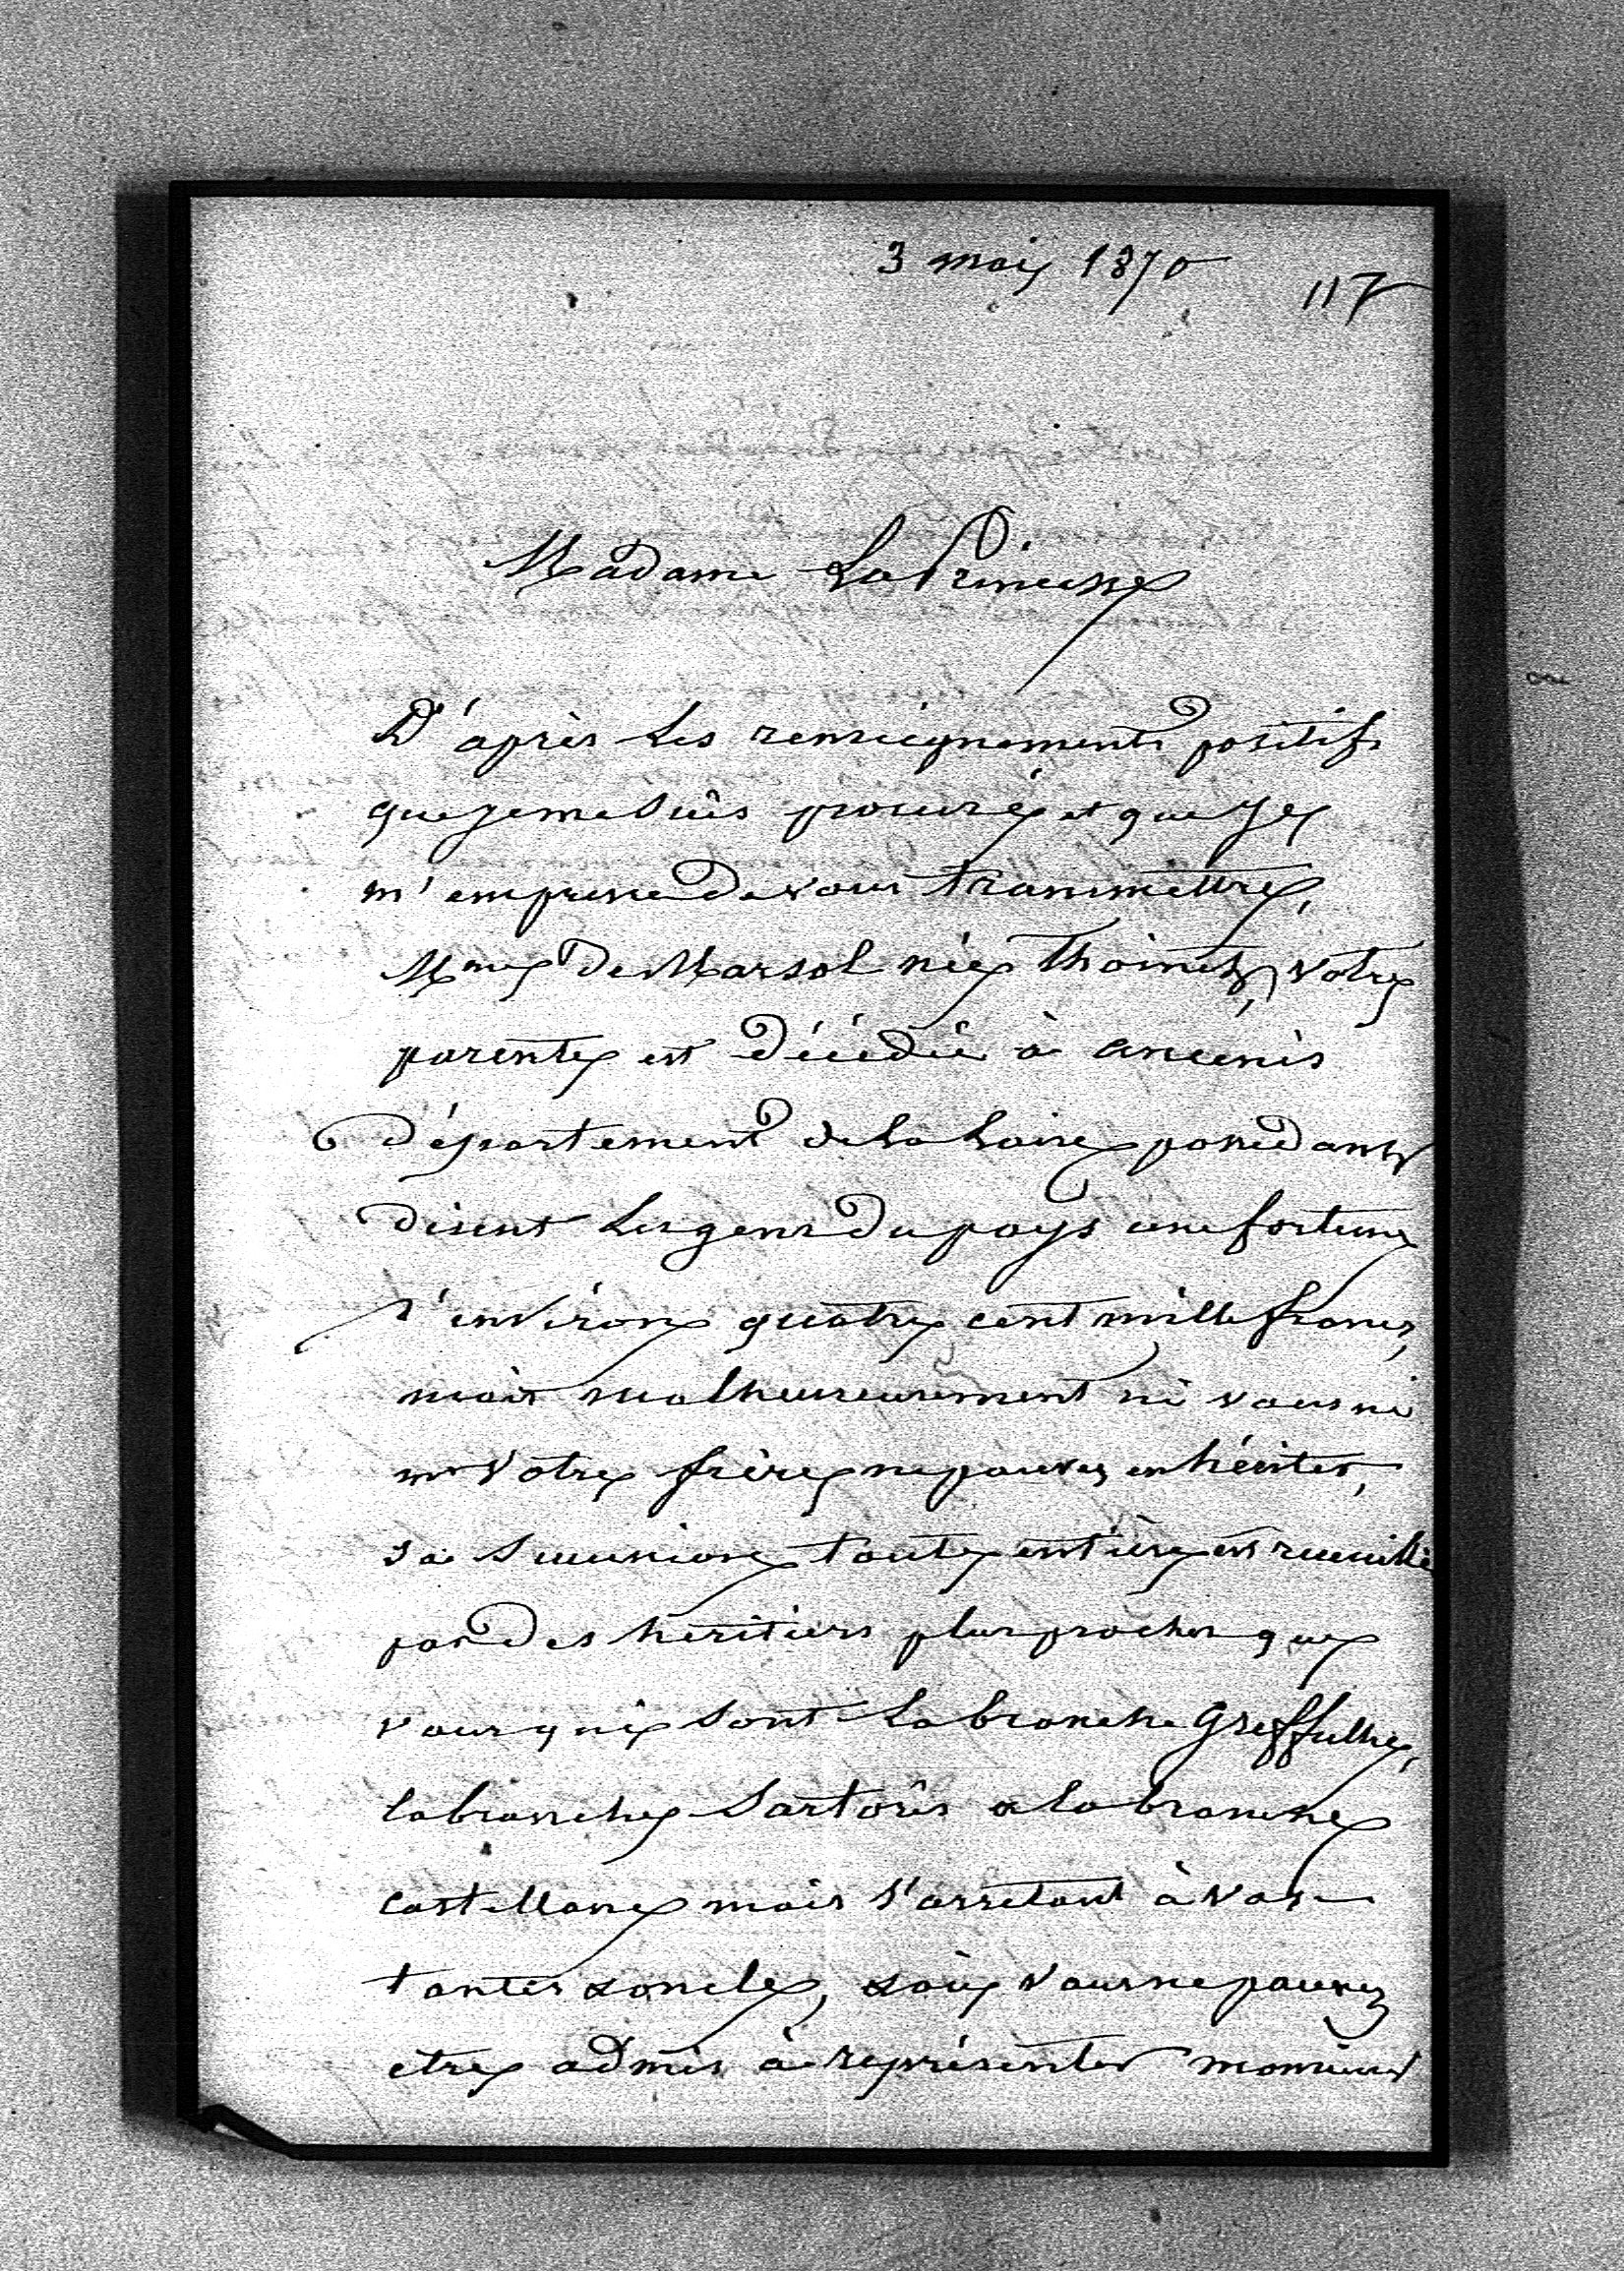 3 mai 1870
117
Madame La Princesse
D'après les renseignements positifs
que je me suis procuré et que je
m'empresse de vous transmettre,
Mme de Marsol née Thoinet, votre
parente est décédée à ancenis
département de la Loire possedant
disent les gens du pays une fortune
d'environ quatre cent mille francs,
mais malheureusement ni vous ni
mr votre frère ne pouvez en hériter,
sa succession toute entière est recueillie
par des héritiers plus proches que
vous qui sont la branche Greffulhe,
la branche Sartoris & la branche
castellane mais s'arretant à vos
tantes & oncle, & où vous ne pouvez
etre admis à représenter monsieur